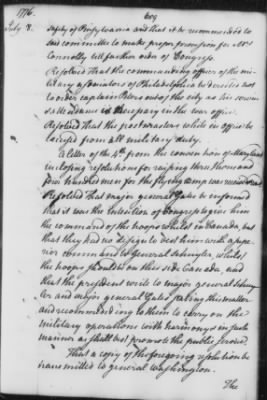 1776.
609
July 8.
safety of Pensylvania and that it be recommended to
said committee to make proper provision for Mrs
Connolly till farther order of Congress.
Resolved That the commanding officer of the mili-
tary associators of Philadelphia be desired not
to order captain Peters out of the city as his
is necessary in the war office.
Resolved That the postmasters while in office be
excused from all military duty.
A letter of the 4th from the convention of Maryland
inclosing resolutions for raising three thousand
four hundred men for the flying camp was received & read
Resolved That major general Gates be informed
that it was the intention of Congress to give him
the command of the troops whilst in Canada, but
that they had no design to vest him with a supe-
rior command to General Schuyler, whilst
the troops should be on this side Canada, and
that the president write to major general Schuy-
ler and major general Gates stating this matter
and recommending to them to carry on the
military operations with harmony & in such
manner as shall best promote the public service.
That a copy of the foregoing resolution be
transmitted to general Washington.
The